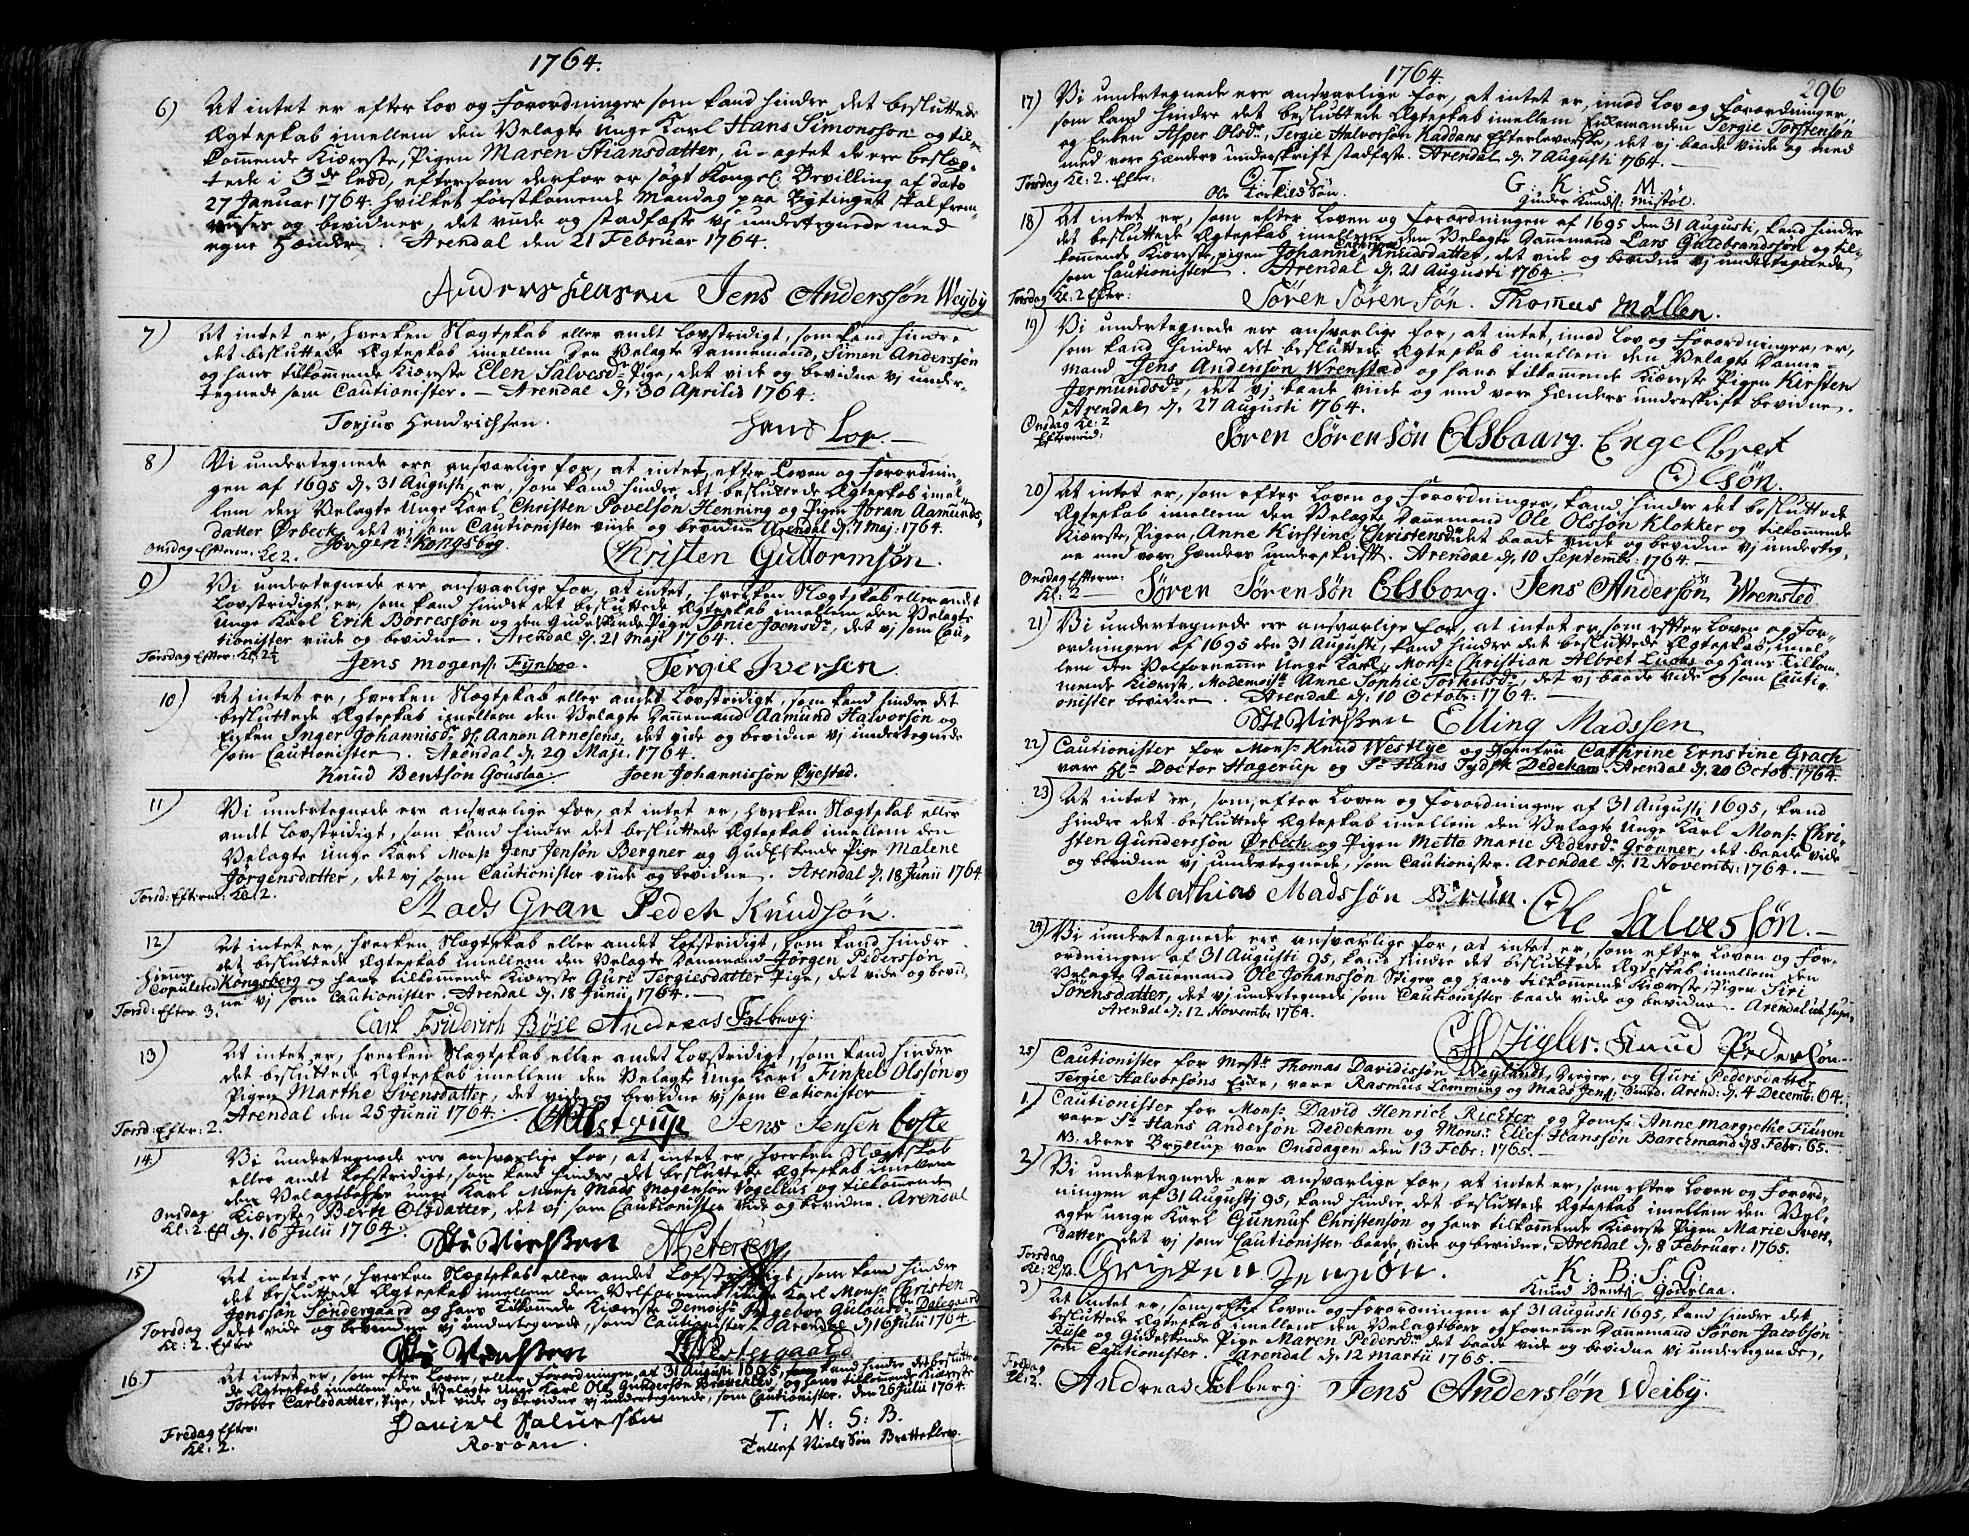 1764.
6) At intet er efter Lov og Forordninger som kand hindre det besluttede
Ægteskab imellem den Velagte Unge Karl Hans Simonssøn og til-
kommende Kiæreste, Pigen Maren Stiansdatter, u-agtet de ere beslæg-
tede i 3de Ledd, eftersom derfor er søgt Kongel: Bevilling af dato
27 Januar 1764. hvilket førstkommende Mandag paa Bytinget skal frem-
vises og bevidnes, det viide og stadfæste vj undertegnede med
egne Hænder. Arendal den 21 Februar 1764.
Anders Clasen Jens Anderssøn Weyby
7) At intet er, hverken Slægtskab eller andt Lovstridigt, som kand hindre
det besluttede Ægteskab imellem den Velagte Dannemand, Simen Anderssøn
og hans tilkommende Kiærste Elen Salvesdr Pige, det vide og bevidne vj under-
tegnede som Cautionister. – Arendal d. 30 Aprilis 1764.
Torjus Hendrichsen. Hans Lor. –
8) Vi undertegnede ere ansvarlige for, at intet, efter Loven og Forordnin-
gen af 1695 d. 31 Augusti, er, som kand hindre det besluttede Ægteskab imel-
lem den Velagte Unge Karl Christen Povelsøn Henning og Pigen Joran Aamunds-
datter Ørbeck, det vj som Cautionister viide og bevidne Arendal d. 7 Maj. 1764.
Onsdag Efterm: Kl 2. Jørgen Kongsberg Christen Guttormsøn.
9) Vi undertegnede ere ansvarlige for, at intet, hverken Slægtskab eller andet
Lovstridigt, er, som kand hindre det besluttede Ægteskab imellem den Velagte
Unge Karl Erik Børressøn og den Gudelskende Pige Tonie Joensdr, det vj som Cau-
tionister viide og bevidne. Arendal d. 21 Maji 1764.
Torsdag Efter: Kl. 2½ Jens Mogens: Fynboe. Tergie Iversen
10) At intet er, hverken Slægtskab eller andet Lovstridigt, som kand hindre det
besluttede Ægteskab imellem den Velagte Dannemand Aamund Halvorsøn og
Enken Inger Johannisdr Sl. Aanon Arnesens, det vide og bevidne vj undertegnede
som Cautionister. Arendal d. 29 Maji. 1764.
Knud Bentsøn Gouslaa. Joen Johannissøn Øyestad.
11) Vi undertegnede ere ansvarlige for, at intet er, hverken Slægtskab eller
andt Lovstridigt, som kand hindre det besluttede Ægteskab imellem den
Velagte Unge Karl Monsr Jens Jensøn Bergner og Gudelskende Pige Malene
Jørgensdatter, det vj som Cautionister viide og bevidne. Arendal d. 18 Junii 1764
Torsd: Efterm: Kl. 2. Mads Gran Peder Knudsøn.
12) At intet er, hverken Slægtskab eller andet Lofstridigt, som kand hindre
det besluttede Ægteskab imellem den Velagte Dannemand Jørgen Pederssøn
Hiemme Copulered Kongsberg og hans tilkommende Kiærste Guri Tergiesdatter Pige, det vide og bevid-
ne vj som Cautionister. Arendal d. 18 Junij, 1764.
Torsd: Efter. 3. Carl Friderich Böse Andreas Falberg:
13) At intet er, hverken Slægtskab eller andet Lovstridigt, som kand hindre
det besluttede Ægteskab imellem den Velagte Unge Karl Finkel Olssøn og
Pigen Marthe Svensdatter, det vide og bevidne vj som Cationister
Arendal den 25 Junii 1764.
Torsd: Efter: 2. Alstrup Jens Jensen Loste
14) Vi undertegnede ere ansvarlige for, at intet er, hverken Slægtskab
eller andt Lofstridigt, som kand hinder det besluttede Ægteskab imellem
den Velagtbahre unge Karl Monsr Mads Mogensøn Vogelius og tilkommende
Kiæreste Berte Olsdatter, det vj som Cautionister vide og bevidne. Arendal
Onsdag Kl: 2 Eff d. 16 Julii 1764.
15) At intet er, hverken Slægtskab eller andet Lofstridigt, som kand hindre
det besluttede Ægteskab imellem den Velfornemme unge Karl Monsr Christen
Jenssøn Søndergaard og hans tilkomende Kiæreste Demoisl Ingebor Gulbusdr Dalegaard
det vide og bevidne vj undertegnede, som Cautionister. Arendal d. 16 Julii 1764.
Torsdag Kl: 2. Efter Westergaard
16.) At intet er, som efter Loven, eller Forordningen af 31 Augusti 1695, kand hindre det beslutte-
de Ægteskab imellem den Velagte Unge Karl Ole Gundersøn Bratteklev, og hans tilkommende Kiæreste
Torbor Carlsdatter, Pige, det vide og bevidne vj undertegnede, som Cautionister. den 26 Julii 1764.
Fredag Efter: Kl: 2. Daniel Salvessøn T: N: S: B.
Rosøen. Tallef Niels Søn Bratteklev.
1764.
296
17) Vi undertegnede ere ansvarlige for, at intet er, imod Lov og Forordninger,
som kand hindre det besluttede Ægteskab imellem Enkemanden Tergie Torstensøn
og Enken Asper Olsdr, Tergie Halvorsøn Kaddans Efterleverske, det vj baade viide og med
med vore Hænders underskrift stadfæste. Arendal d. 7 Augusti 1764. –
Torsdag Kl: 2. Efter: O T S G. K: S: M
Ole Torkild Søn. Gunder Knuds: Mistøl.
18) At intet er, som efter Loven og Forordningen af 1695 den 31 Augusti, kand hindre
det besluttede Ægteskab imellem den Velagte Dannemand Lars Guldbrandssøn og til-
kommende Kiæreste, pigen Johanne Cathrine Knudsdatter, det vide og bevidne vj undertegnede
som Cautionister. Arendal d. 21 Augusti 1764.
Torsdag Kl: 2 Efter: Søren Søren Søn. Thomas Møllen.
19) Vi undertegnede ere ansvarlige for, at intet, imod Lov og Forordninger, er,
som kand hinder det besluttede Ægteskab imellem den Velagte Danne-
mand Jens Andersøn Wrenstad og hans tilkommende Kiæreste Pigen Kirsten
Jormundsdr, det vj baade viide og med vore Hænders underskrift bevidne.
Arendal d. 27 Augusti 1764.
Onsdag Kl: 2 Eftermid: Søren Sørensøn Elsbourg. Engelbret
Olsøn.
20) At intet er, som efter Loven og Forordninger, kand hinder det besluttede
Ægteskab imellem den Velagte Dannemand Ole Olssøn Klokker og tilkommende
Kiæreste, Pigen, Anne Kirstine Christensdr det baade viide og bevidne vj underteg-
ne med vore Hænders underskrift. Arendal d. 10 Septembr: 1764. –
Onsdag Efterm: Kl: 2 Søren Sørensøn Elsborg. Jens Andersøn Wrensted
21) Vi undertegnede ere ansvarlige for, at intet er, som efter Loven og For-
ordningen af 1695 den 31 Augusti, kand hindre det besluttede Ægteskab, imel-
lem den Velfornemme Unge Karl, Monsr Christian Albret Lucas og Hans tilkom-
mende Kiærste, Mademoisl Anne Sophie Torkilsdr, det vj baade vide og som Cauti-
onister bevidne. Arendal d. 10 Octobr: 1764. –
Elling Madssen
22) Cautionister for Monsr Knud Westlye og Jomfru Cathrine Ernstine Grach
vare Hr Doctor Hagerup og Sr Hans Tydsk Dedekam. Arendal d. 20 Octob: 1764.
23) At intet er, som efter Loven og Forordningen af 31 Augusti 1695, kand
hindre det besluttede Ægteskab imellem den Velagte Unge Karl Monsr Chri-
sten Gunderssøn Ørbech og Pigen Mette Marie Pedersdr Grønner, det baade vide
og bevidne vj undertegnede, som Cautionister. Arendal d. 12 Novembr: 1764. –
Mathias Madssøn Bruun. Ole Salvessøn. –
24) Vi undertegnede ere ansvarlige for, at intet er, som efter Loven og For-
ordningen af 31 Augusti 95, kand hindre det besluttede Ægteskab imellem den
Velagte Dannemand Ole Johanssøn Stiger og hans tilkommende Kiæreste, Pigen Siri
Sørensdatter, det vj undertegnede som Cautionister baade vide og bevidne. Arendal
Arendal d. 12 Novembr 1764.
Zigler. Knud Pedersøn
25) Cautionister for Mestr Thomas Davidissøn Weylandt, Greger, og Guri Pedersdatter
Tergie Halvorsøns Enke, vare Rasmus Lemming og Mads Jens: Smed. Arend: d. 4 Decembr: 64.
1) Cautionister for Monsr David Henrich Richter og Jomfr: Anne Margrethe Finron
vare Sr Hans Andersøn Dedekam og Monsr: Ellef Hanssøn Barchmand d. 8 Febr: 65.
NB: deres Bryllup var Onsdagen den 13 Febr: 1765.
2) Vi undertegnede ere ansvarlige for, at intet er, som efter Loven og Forord-
ningen af 31 Augustj 95, kand hindre det besluttede Ægteskab imellem den Vel-
agte unge Karl Gunnuf Christensøn og hans tilkommende Kiæreste Pigen Marie Ivers-
datter det vj som Cautionister baade vide og bevidne. Arendal d. 8 Februar: 1765.
Torsdag Kl: 2 Christen Jensøn. K: B: S: G:
Knud Bents: Gouslaa
3) At intet er, som efter Loven og Forordningen af 31 Augusti 1695, kand hinder det
besluttede Ægteskab imellem den Velagtbare og fornemme Dannemand Søren Jacobsøn
Ruse og Gudelskende Pige Maren Pedersdr det baade vide og bevidne vj undertegnede,
som Cautionister. Arendal d. 12 Martii 1765.
Fredag Kl: 2. Andreas Falberg: Jens Anderssøn Weiby.